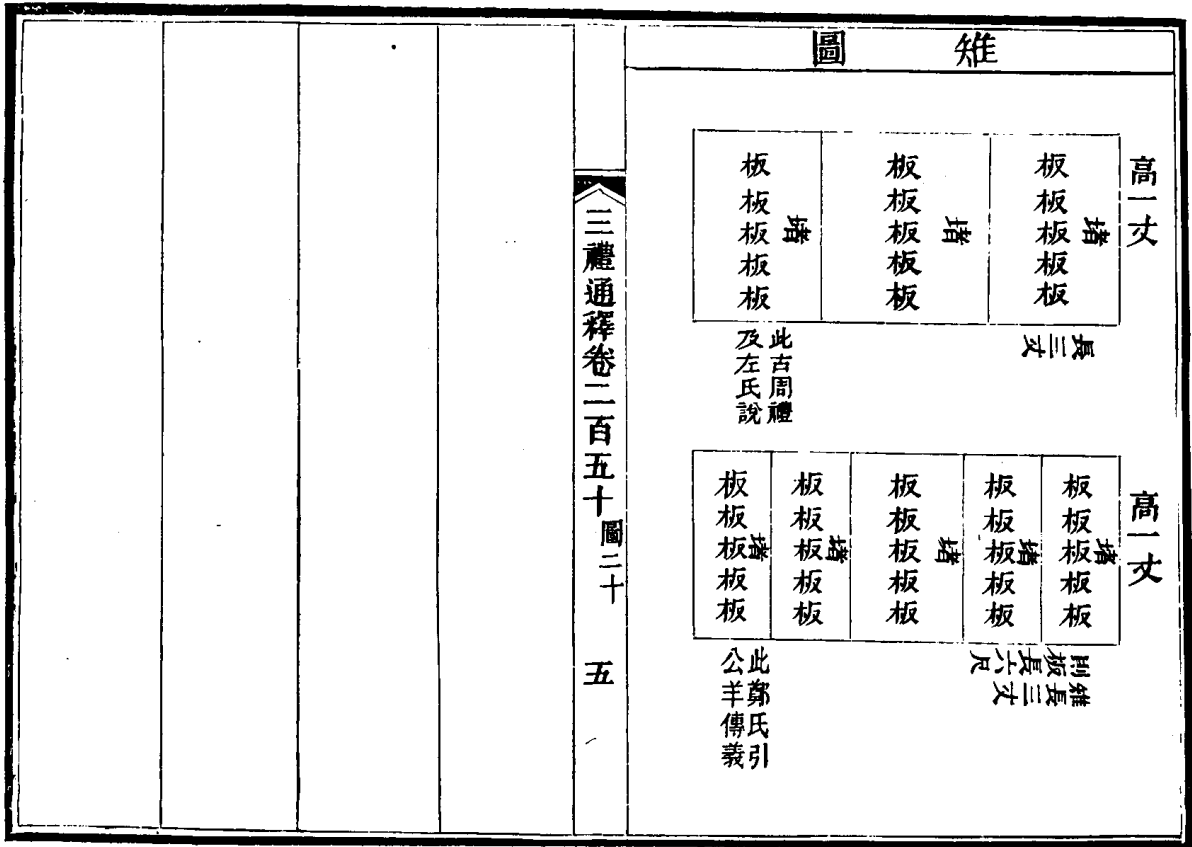 雉圖
高一丈
堵
板板板板板
堵
板板板板板
堵
板板板板板
長三丈
此古周禮
及左氏說
高一丈
堵
板板板板板
堵
板板板板板
堵
板板板板板
堵
板板板板板
堵
板板板板板
雉長三丈
則板長六尺
此鄭氏引
公羊傳義
三禮通釋卷二百五十 圖二十 五